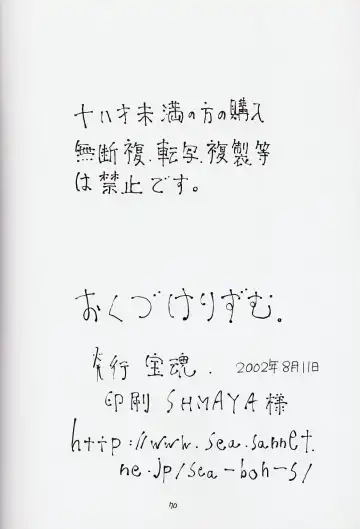 十八才未満の方の購入
無断複、転写、複製等
は禁止です。
おくづけりずむ。
発行 宝魂. 2002年8月11日
印刷 SHMAYA様
http://www.sea.sannet.
ne.jp/sea-boh-s/
70